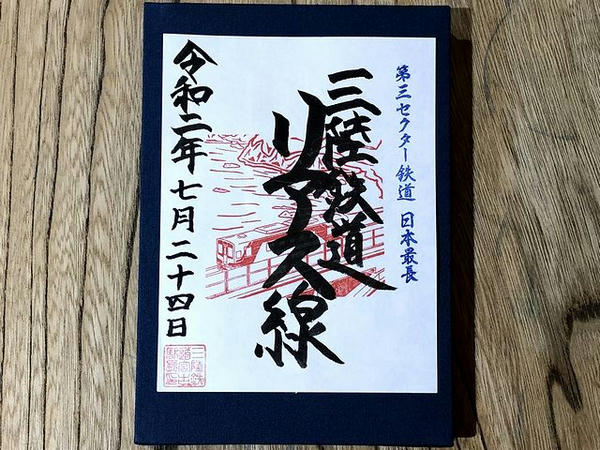 第三セクター鉄道 日本最長
三陸鉄道
リアス線
令和二年七月二十四日